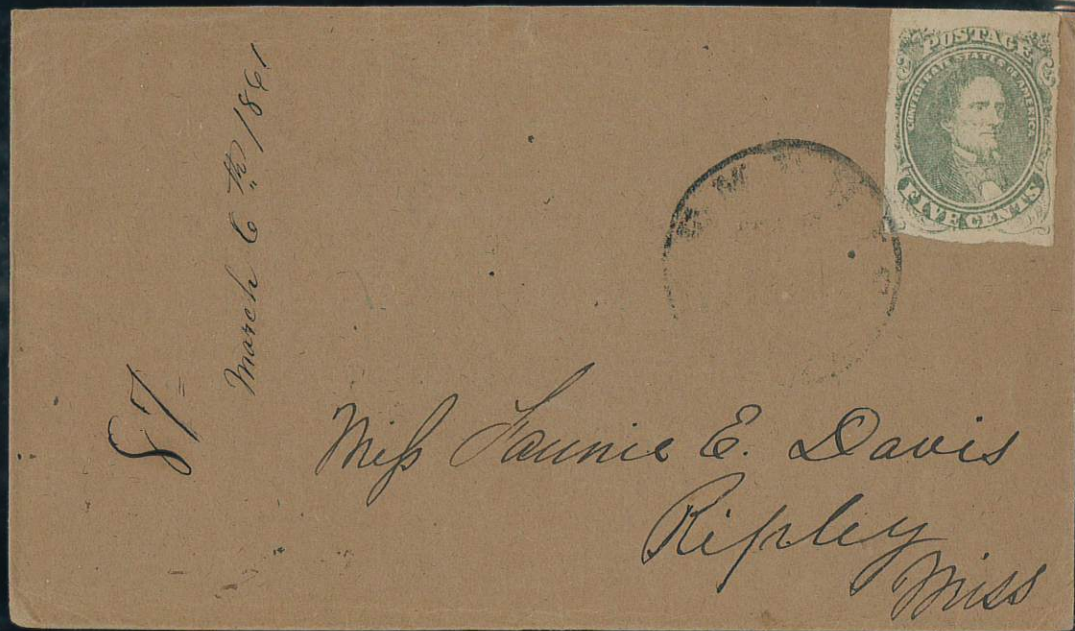 POSTAGE
CONFEDERATE STATES OF AMERICA
FIVE CENTS
March 6th 1861
87
Miss Fannie E. Davis
Ripley
Miss